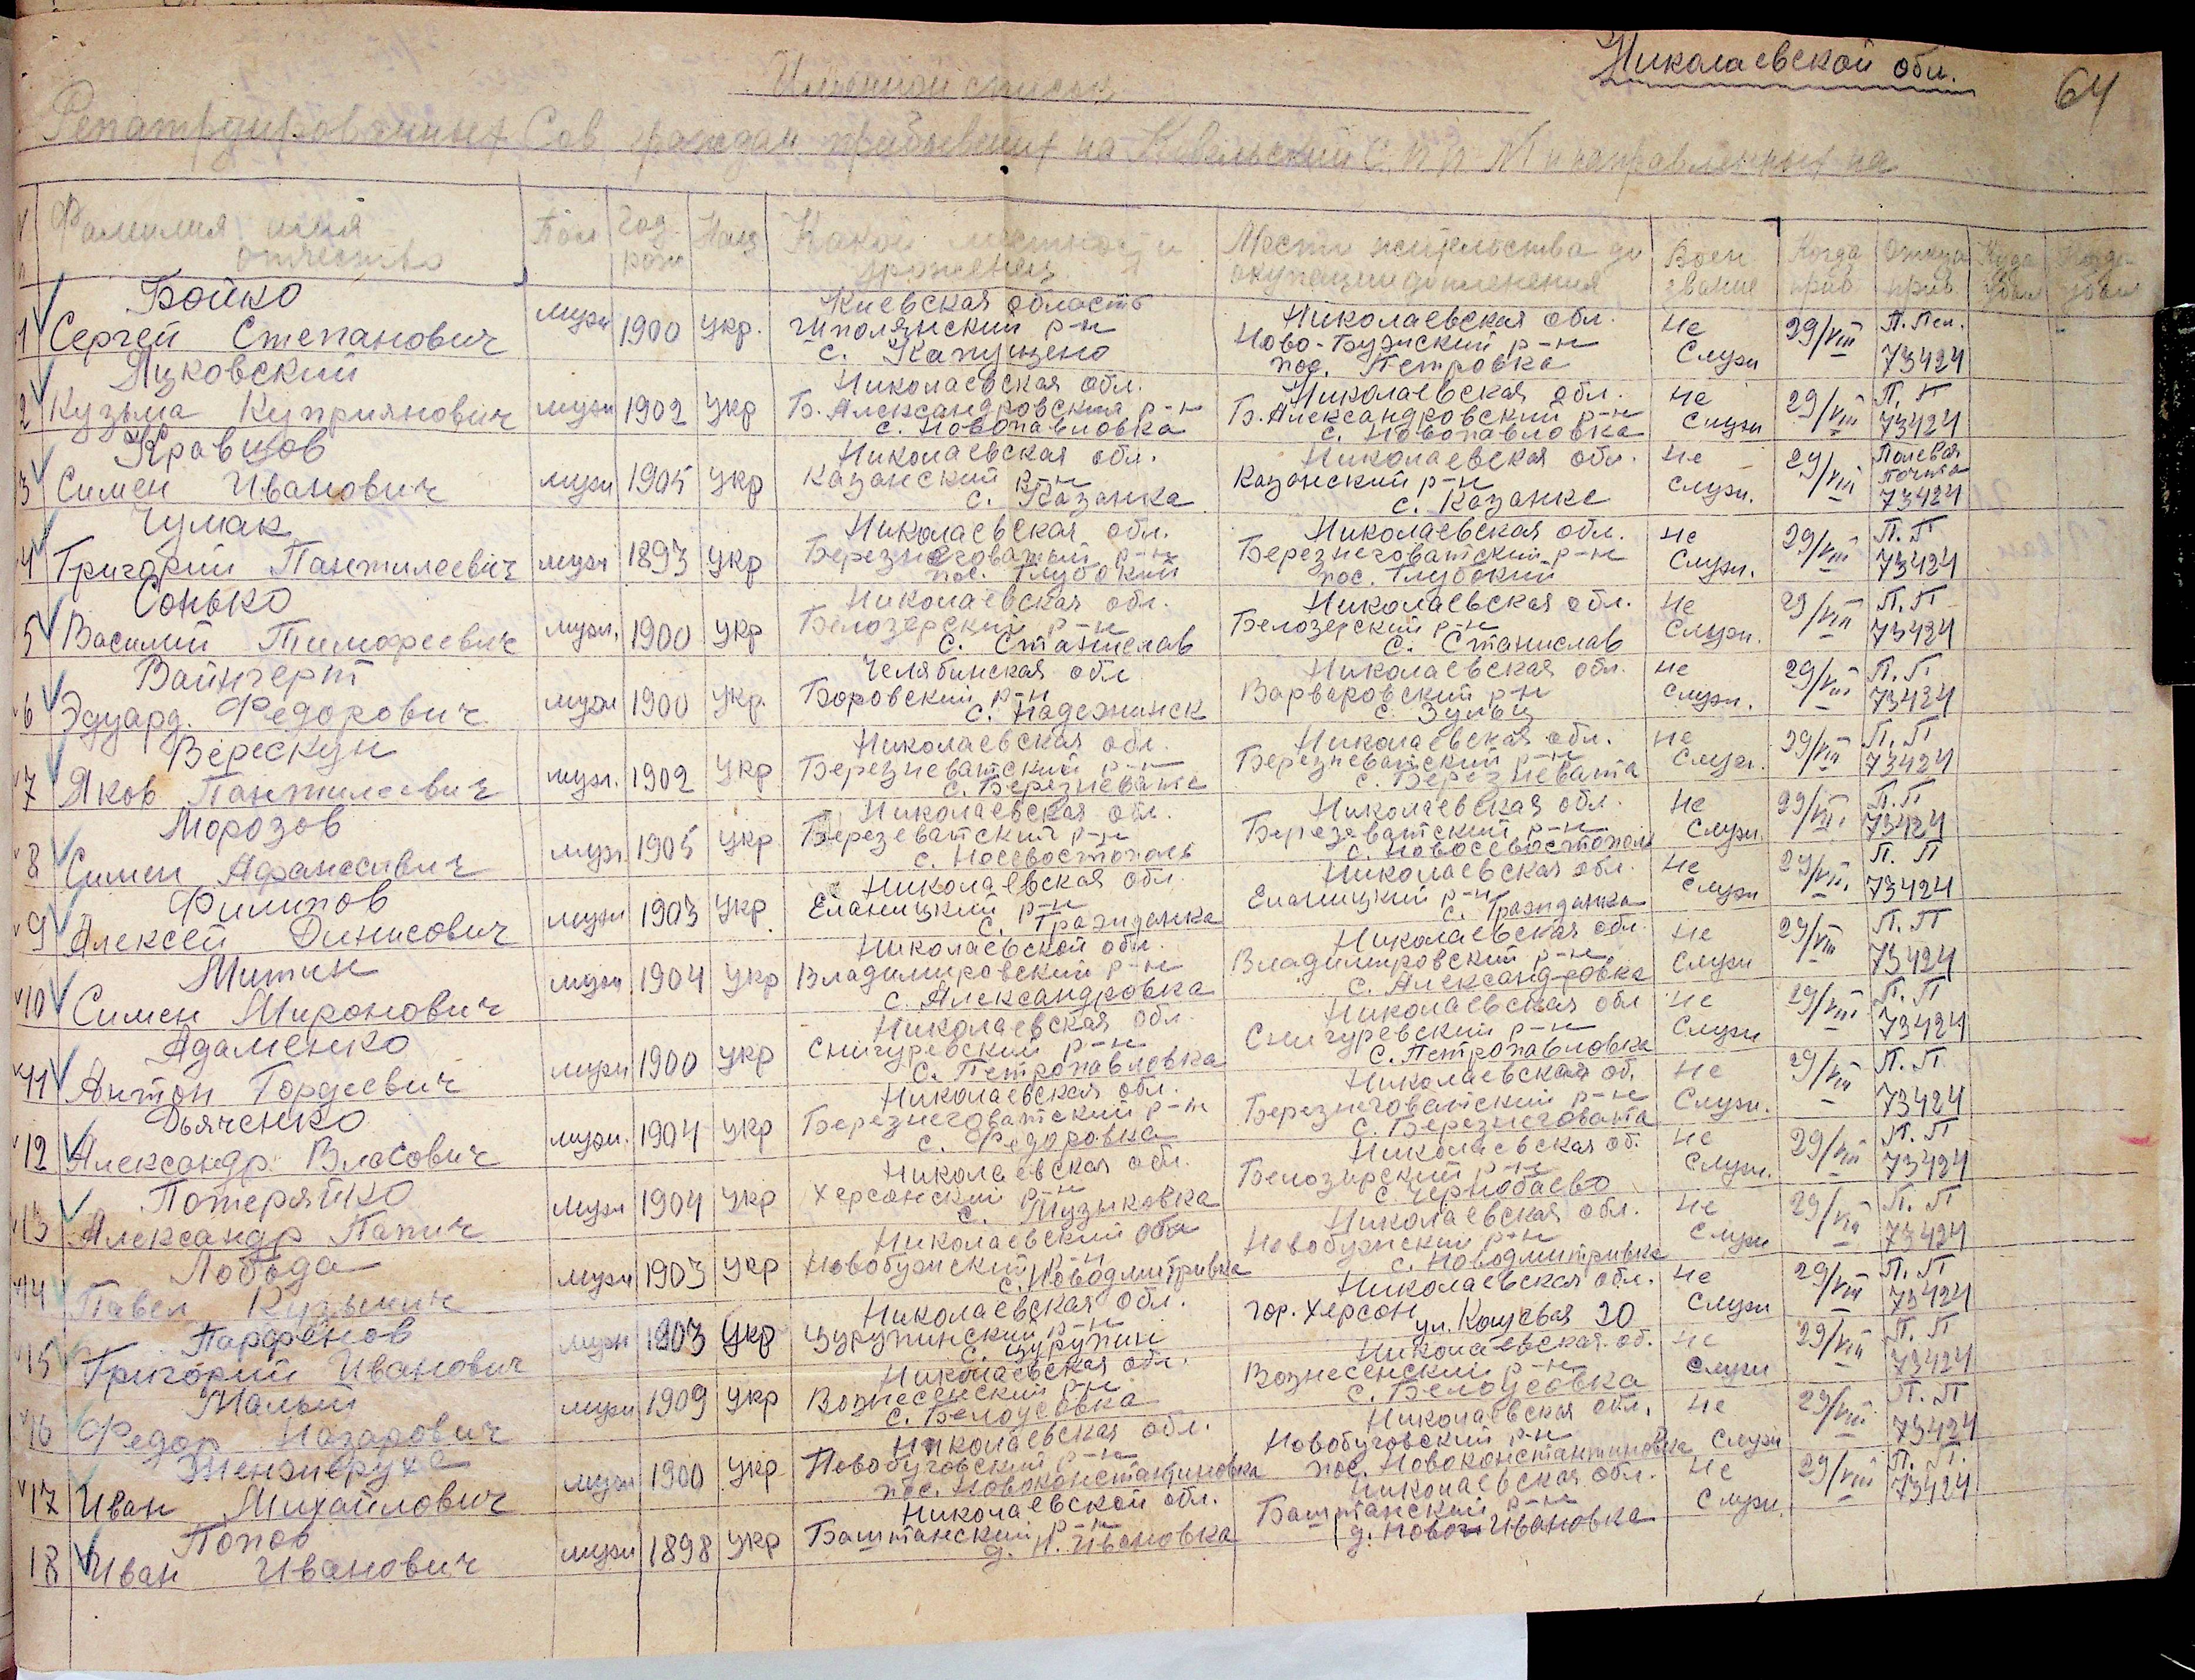 Николаевской обл.
64
Именной список
Репатриированных Сов граждан прибывших на Ковельский С.П.П. №1 и направленных на
Фамилия имя отчество Пол Год рож Нац Какой местности уроженец Место жительства до окупации до пленения Воен звание Когда приб Откуда приб Куда убыл Когда убыл
1 Бойко Сергей Степанович муж 1900 укр. Киевская область р-н с. Николаевская обл. Ново-Бужский р-н пос. Петровка не служ 29/VIII П. Пол. 73424
2 Яцковский Кузьма Куприянович муж 1902 укр Николаевская обл. Б. Александровский р-н с. Новопавловка Николаевская обл. Б. Александровский р-н с. Новопавловка не служ 29/VIII П. П 73424
3 Кравцов Симен Иванович муж 1905 укр Николаевская обл. Казанский р-н с. Казанка Николаевская обл. Казанский р-н с. Казанке не служ. 29/VIII Полевая почта 73424
4 Чумак Григорий Пантилеевич муж 1893 укр Николаевская обл. Березнеговатый р-н пос. Глубокий Николаевская обл. Березнеговатский р-н пос. Глубокий не служ. 29/VIII П. П 73424
5 Сонько Василий Тимофеевич муж. 1900 укр Николаевская обл. Белозерский р-н с. Станислав Николаевская обл. Белозерский р-н с. Станислав не служ. 29/VIII П. П 73424
6 Вайнгерт Эдуард. Федорович муж 1900 укр. Челябинская обл Боровский р-н с. Надежинск Николаевская обл. Варваровский р-н с. Зульц не служ. 29/VIII П. П 73424
7 Верескун Яков Пантилеевич муж. 1902 укр Николаевская обл. Березневатский р-н с. Березневате Николаевская обл. Березневатский р-н с. Березневата не служ. 29/VIII П. П 73424
8 Морозов Симен Афанасивич муж. 1905 укр Николаевская обл. Березеватский р-н с. Николаевская обл. Березеватский р-н с. Новосевостополь не служ. 29/VIII П. П 73424
9 Филипов Алексей Динисович муж 1903 укр. Николаевская обл. Еланицкий р-н с. Гражданка Николаевская обл. Еланицкий р-н с. Гражданка не служ 29/VIII П. П 73424
10 Митин Симен Миронович муж 1904 укр Николаевской обл. Владимировский р-н с. Александровка Николаевская обл. Владимировский р-н с. Александровка не служ 29/VIII П. П 73424
11 Адаменко Антон Гордеевич муж 1900 укр Николаевская обл. Снигуревский р-н с. Петропавловка Николаевская обл Снигуревский р-н с. Петропавловка не служ 29/VIII П. П 73424
12 Дьяченко Александр Власович муж. 1904 укр Николаевская обл. Березнеговатский р-н с. Федоровка Николаевская об. Березнеговатский р-н с. Березнеговата не служ. 29/VIII П. П 73424
13 Потеряйко Александр муж 1904 укр Николаевская обл. Херсонский р-н с. Музыковка Николаевская об. Белозирский р-н с. Чернобаево не служ. 29/VIII П. П 73424
14 Лобода Павел Кузьмин муж 1903 укр Николаевский обл Новобужский р-н с. Новодмитривка Николаевская обл. Новобужский р-н с. Новодмитривка не служ 29/VIII П. П 73424
15 Парфенов Григорий Иванович муж 1903 укр Николаевская обл. Цурупинский р-н с. Цурупин Николаевская обл. гор. Херсон ул. 20 не служ 29/VIII П. П 73424
16 Малый Федор Назарович муж 1909 укр Николаевская обл. Вознесенский р-н с. Белоусовка Николаевская об. Вознесенский р-н с. Белоусовка не служ 29/VIII П. П 73424
17 Иван Михайлович муж 1900 укр Николаевская обл. Новобуговский р-н пос. Новоконстантиновка Николаевская обл. Новобуговский р-н пос. Новоконстантиновка не служ 29/VIII П. П 73424
18 Попов Иван Иванович муж 1898 укр Николаевской обл. Баштанский р-н д. Н. Ивановка Николаевская обл. Баштанский р-н д. Ивановка не служ. 29/VIII П. П. 73424